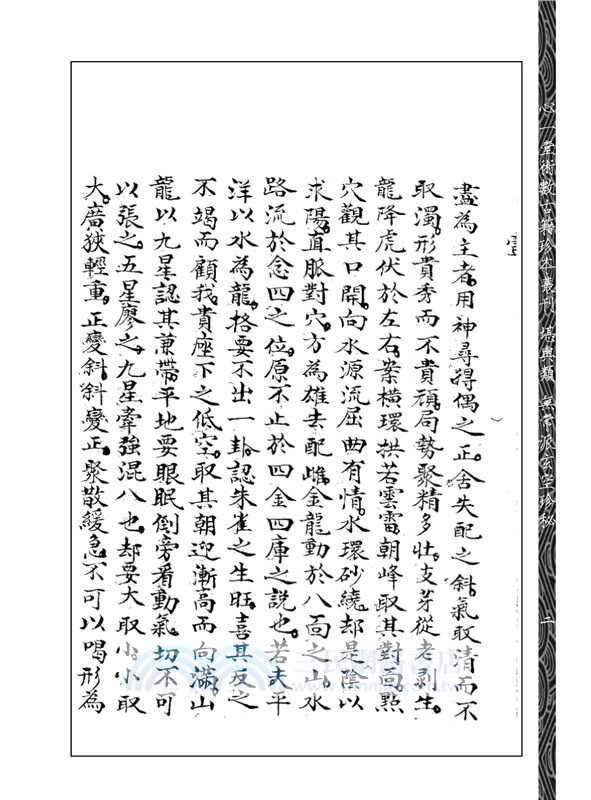 心一堂術數古籍珍本叢刊 堪輿類 無常派玄空珍秘
二
盡為主者。用神尋得偶之正。舍失配之斜。氣取清而不
取濁。形貴秀而不貴頑。局勢聚精多壯。支芽從老剥生。
龍降虎伏於左右。案橫環拱若雲雷。朝峰取其對向。點
穴觀其口開。向水源流屈曲有情。水環砂繞却是陰以
求陽。直脈對穴。方為雄去配雌。金龍動於八面之山。水
路流於念四之位。原不止於四金四庫之說也。若夫平
洋以水為龍。格要不出一卦。認朱雀之生旺。喜其反之
不竭而顧我。貴座下之低空。取其朝迎漸高而向滿。山
龍以九星認其兼帶。平地要眼眠倒旁看動氣。切不可
以張之五星廖之九星牽強混八也。却要大取小。小取
大。廣狹輕重。正變斜。斜變正。聚散緩急。不可以喝形為
三民網路書店